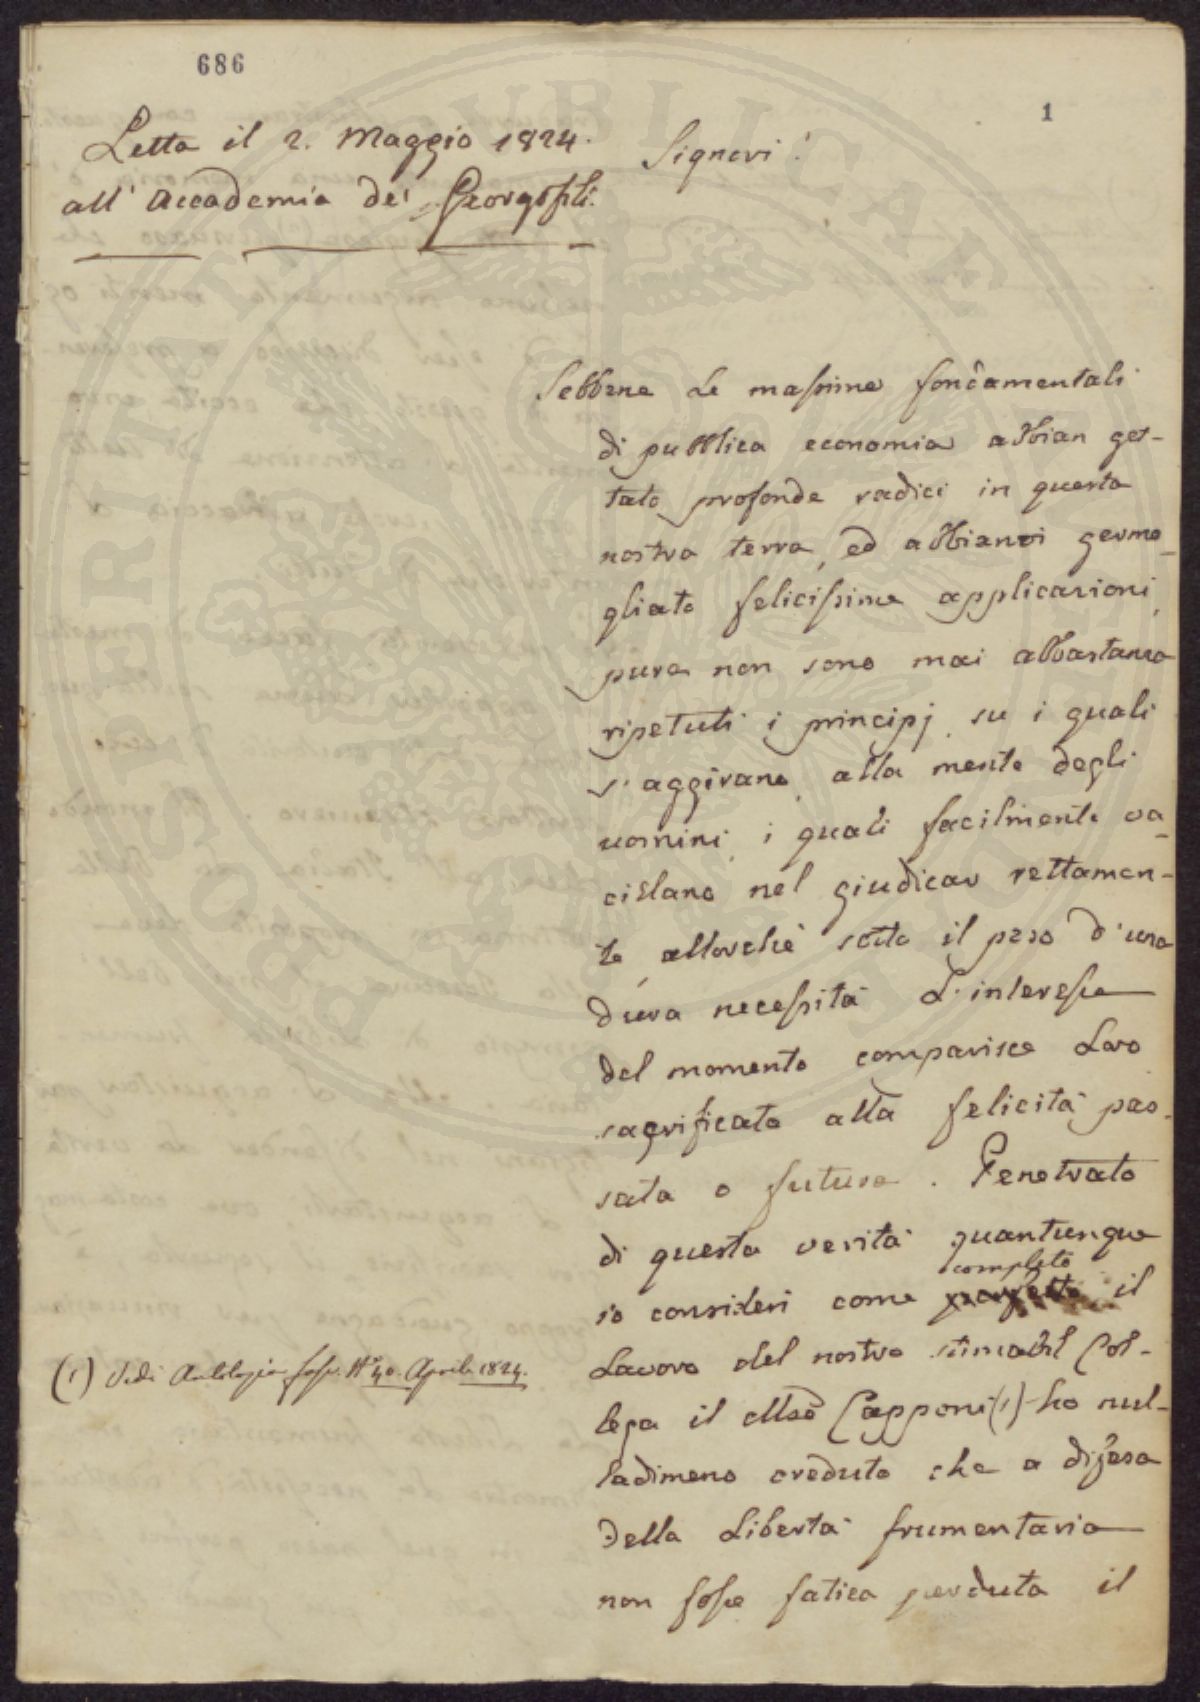 686
1
Letta il 2. Maggio 1824.
all' Accademia de' Georgofili.
Signori!
Sebbene le massime fondamentali
di pubblica economia abbian get-
tato profonde radici in questa
nostra terra, ed abbianvi germo-
gliato felicissime applicazioni,
pure non sono mai abbastanza
ripetuti i principj su i quali
s'aggirano, alla mente degli
uomini, i quali facilmente va-
cillano nel giudicar rettamen-
te allorchè sotto il peso d'una
dura necessità l'interesse
del momento comparisce loro
sagrificato alla felicità pas-
sata o futura. Penetrato
di questa verità quantunque
completo
io consideri come perfetto il
lavoro del nostro stimabil Col-
lega il Mse Capponi (1) ho nul-
ladimeno creduto che a difesa
della libertà frumentaria
non fosse fatica perduta il
(1) Vedi Antologia fasc. N° 40. Aprile 1824.